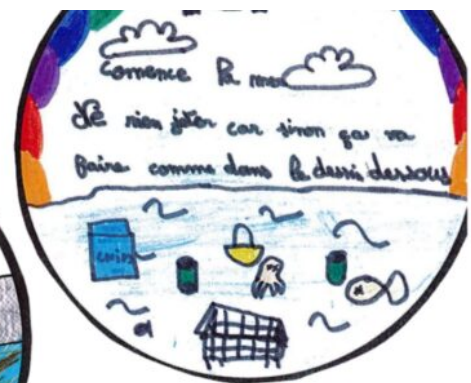 comence la mer
Ne rien jeter car sinon ça va
faire comme dans le dessin dessous